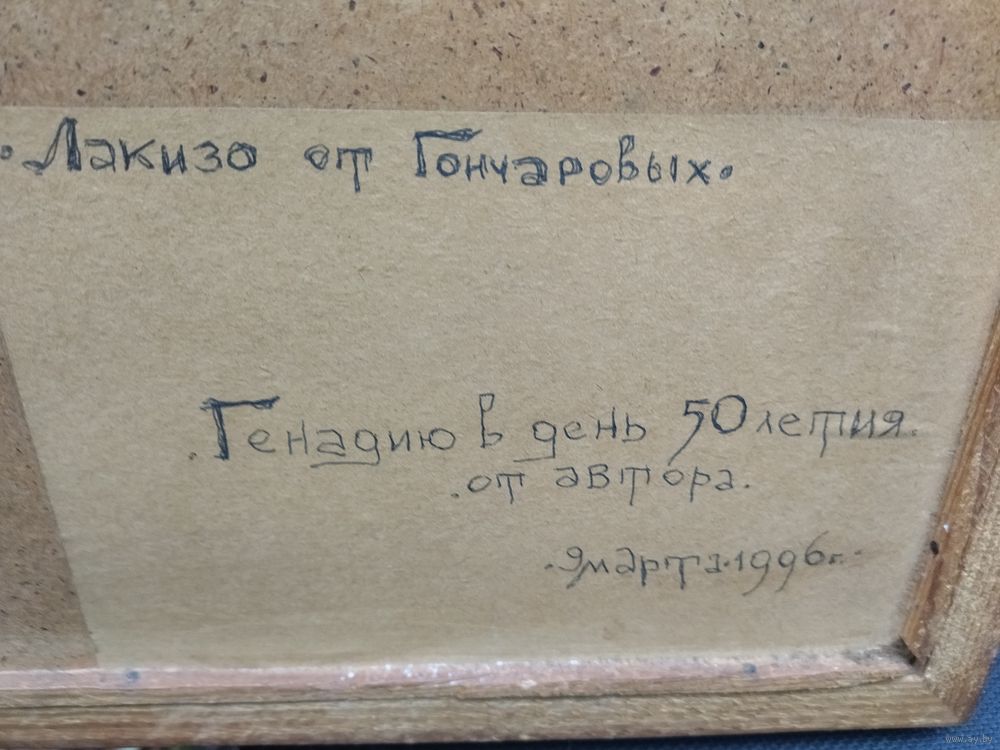 . Лакизо от Гончаровых.
. Генадию в день 50 летия.
. от автора.
. 9 марта . 1996 г. .
www.ay.by